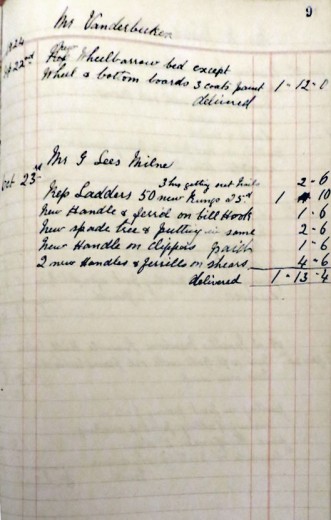 9
Mr Vanderbecken
1924
22nd New Wheelbarrow bed except
Wheel & bottom boards 3 coats paint 1-12-0
delivered
Mr G Lees Milne
Oct 23rd 3 hrs getting out 2-6
Rep Ladders 50 new Rungs a 5d 1 10
New Handle & ferrol on bill Hook 1-6
New spade tree & putting in same 2-6
New Handle on clipping 1-6
2 new Handles & ferrills on shears 4-6
delivered 1-13-4